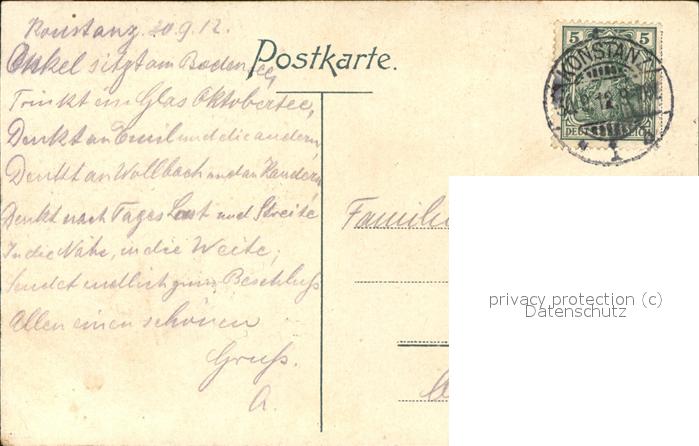 Konstanz 20.9.12.
Postkarte.
Onkel sitzt am Bodensee,
Trinkt ein Glas Oktobertee,
Denkt an Emil und die andern
Denkt an Wollbach und an Kandern
Denkt nach Tages Lust und Streite
In die Nähe, in die Weite,
Sendet endlich zum Beschluß
Allen einen schönen
Gruß.
A.
5 5
KONSTANZ
12
DEUTSCHES REICH
* 1
Familie
privacy protection (c)
Datenschutz